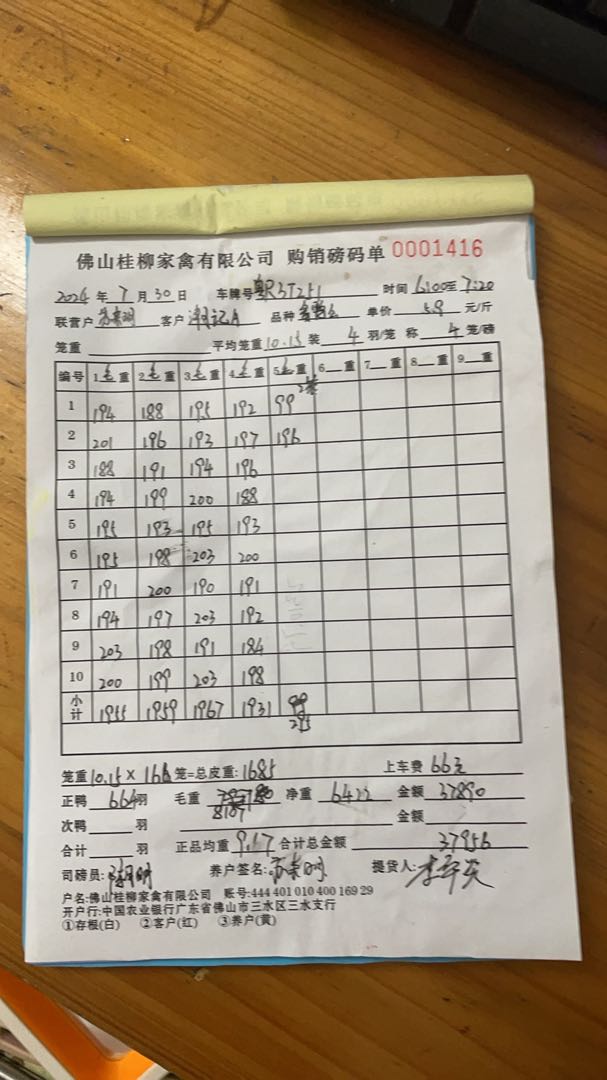 佛山桂柳家禽有限公司 购销磅码单 0001416
2024 年 7 月 30 日 车牌号 粤R37251 时间 6:00至 7:20
联营户 客户 记A 品种 单价 5.9 元/斤
笼重 平均笼重 10.15 装 4 羽/笼 称 4 笼/磅
编号 1毛重 2毛重 3毛重 4毛重 5毛重 6 重 7 重 8 重 9 重
1 194 188 195 192 99 2笼
2 201 196 193 197 196
3 188 191 194 196
4 194 199 200 188
5 195 193 195 193
6 195 198 203 200
7 191 200 190 191
8 194 197 203 192
9 203 198 191 184
10 200 199 203 198
小计 1955 1959 1967 1931 295
笼重 10.15 × 166 笼=总皮重: 1685 上车费 66元
正鸭 664 羽 毛重 8107 净重 6422 金额 37890
次鸭 羽 金额
合计 羽 正品均重 9.67 合计总金额 37956
司磅员: 养户签名: 提货人:
户名:佛山桂柳家禽有限公司 账号:444 401 010 400 169 29
开户行:中国农业银行广东省佛山市三水区三水支行
①存根(白) ②客户(红) ③养户(黄)